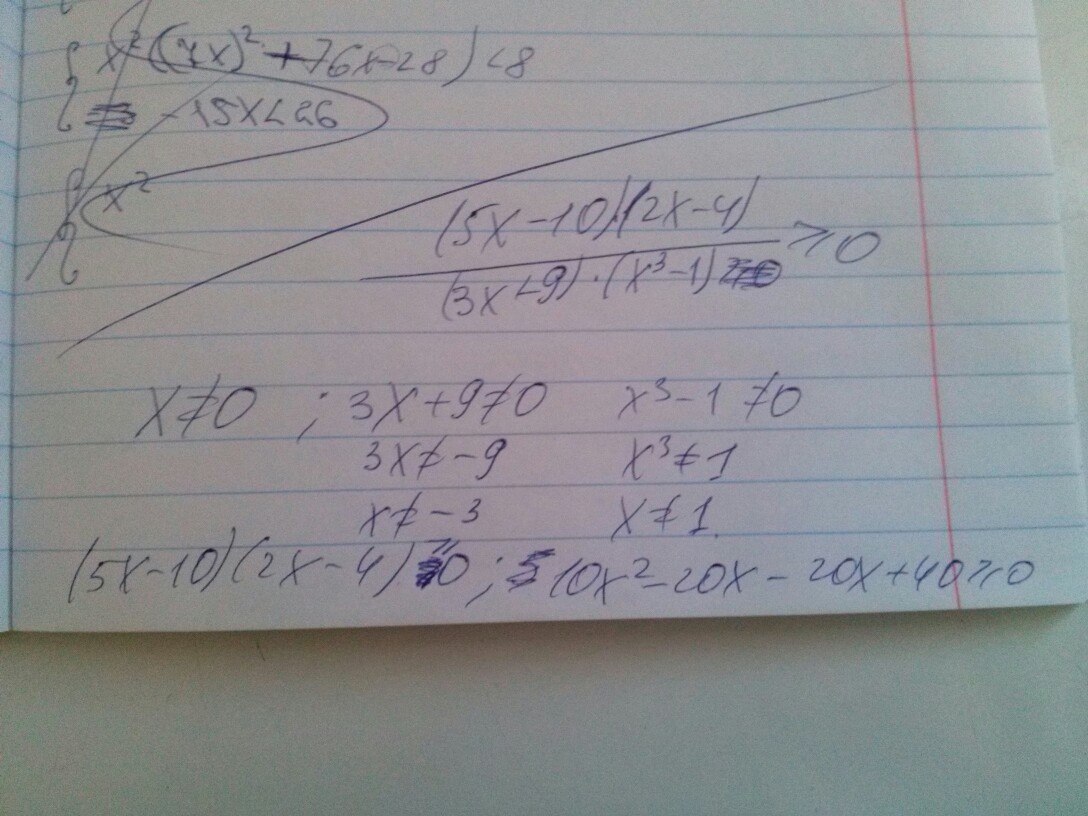 x²((7x)²+76x-28)<8
-15x<26
x²
(5x-10)·(2x-4)
(3x+9)·(x³-1) ≥0
x≠0 ; 3x+9≠0 x³-1≠0
3x≠-9 x³≠1
x≠-3 x≠1.
(5x-10)(2x-4)≥0; 10x²-20x-20x+40≥0